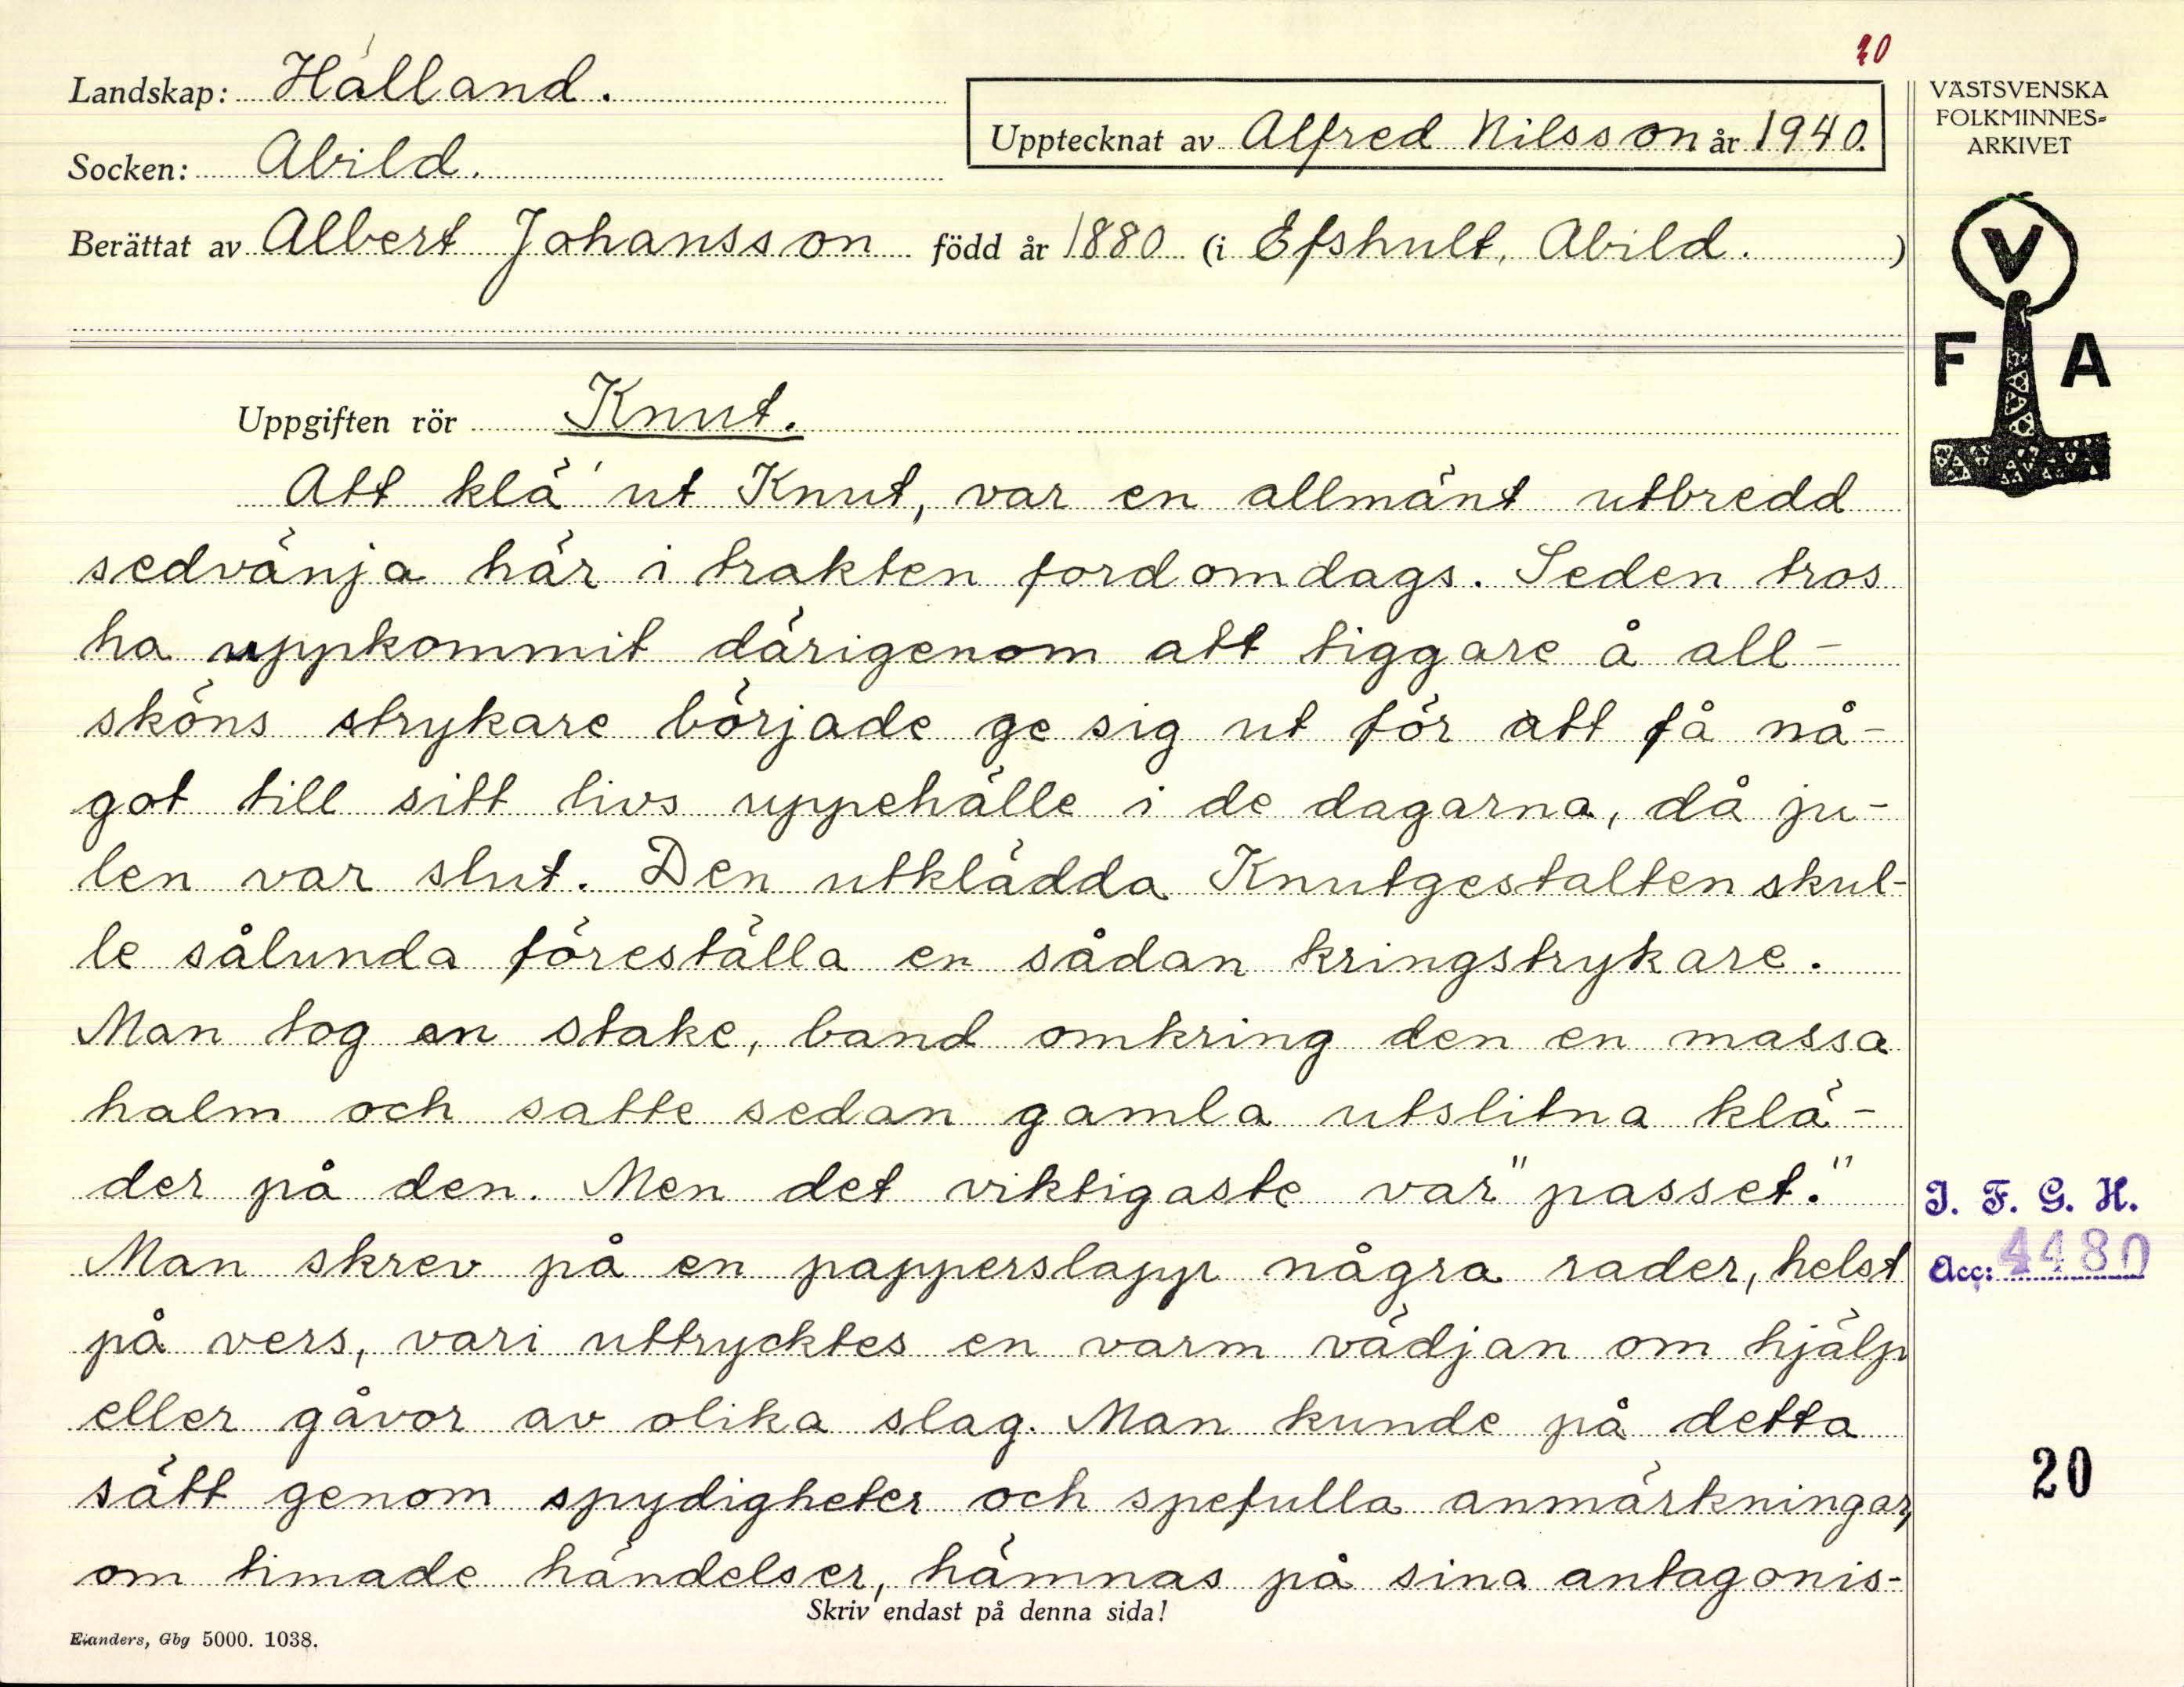 20
Landskap: Halland.
Socken: Abild.
Upptecknat av Alfred Nilsson år 1940.
Berättat av Albert Johansson född år 1880 (i Efshult, Abild. )
Uppgiften rör Knut.
Att klä' ut Knut, var en allmänt utbredd
sedvänja här i trakten fordomdags. Seden tros
ha uppkommit därigenom att tiggare å all-
sköns strykare började ge sig ut för att få nå-
got till sitt livs uppehälle i de dagarna, då ju-
len var slut. Den utklädda Knutgestalten skul-
le sålunda föreställa en sådan kringstrykare.
Man tog en stake, band omkring den en massa
halm och satte sedan gamla utslitna klä-
der på den. Men det viktigaste var "passet."
Man skrev på en papperslapp några rader, helst
på vers, vari uttrycktes en varm vädjan om hjälp
eller gåvor av olika slag. Man kunde på detta
sätt genom spydigheter och spefulla anmärkningar,
om timade händelser, hämnas på sina antagonis-
Skriv endast på denna sida!
Elanders, Gbg 5000. 1038.
VÄSTSVENSKA
FOLKMINNES-
ARKIVET
V
F A
I. F. G. H.
Acc: 4480
20